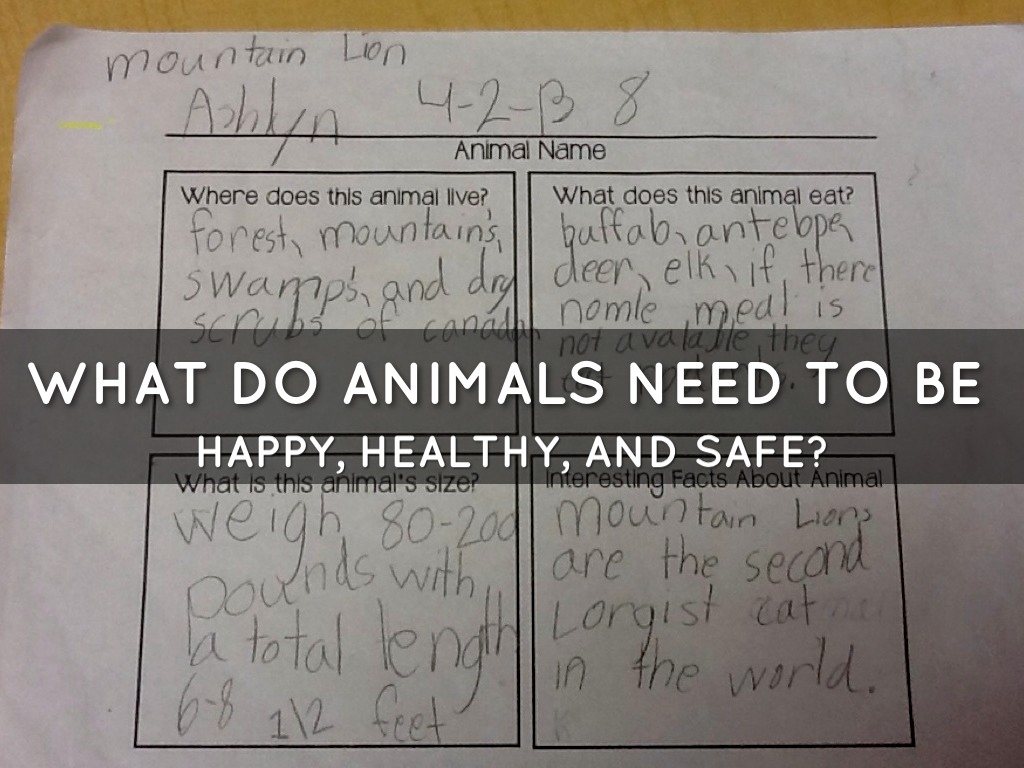 mountain Lion
Ashlyn 4-2-13 8
Animal Name
Where does this animal live?
forest, mountain's,
swamp's, and dry
scrubs of canadah
What does this animal eat?
buffalo, antelope,
deer, elk, if there
nomle meal is
not avalable they
WHAT DO ANIMALS NEED TO BE
HAPPY, HEALTHY, AND SAFE?
What is this animal's size?
weigh 80-200
pounds with
a total length
6-8 1\2 feet
Interesting Facts About Animal
mountain Lions
are the second
Lorgist cat
in the world.